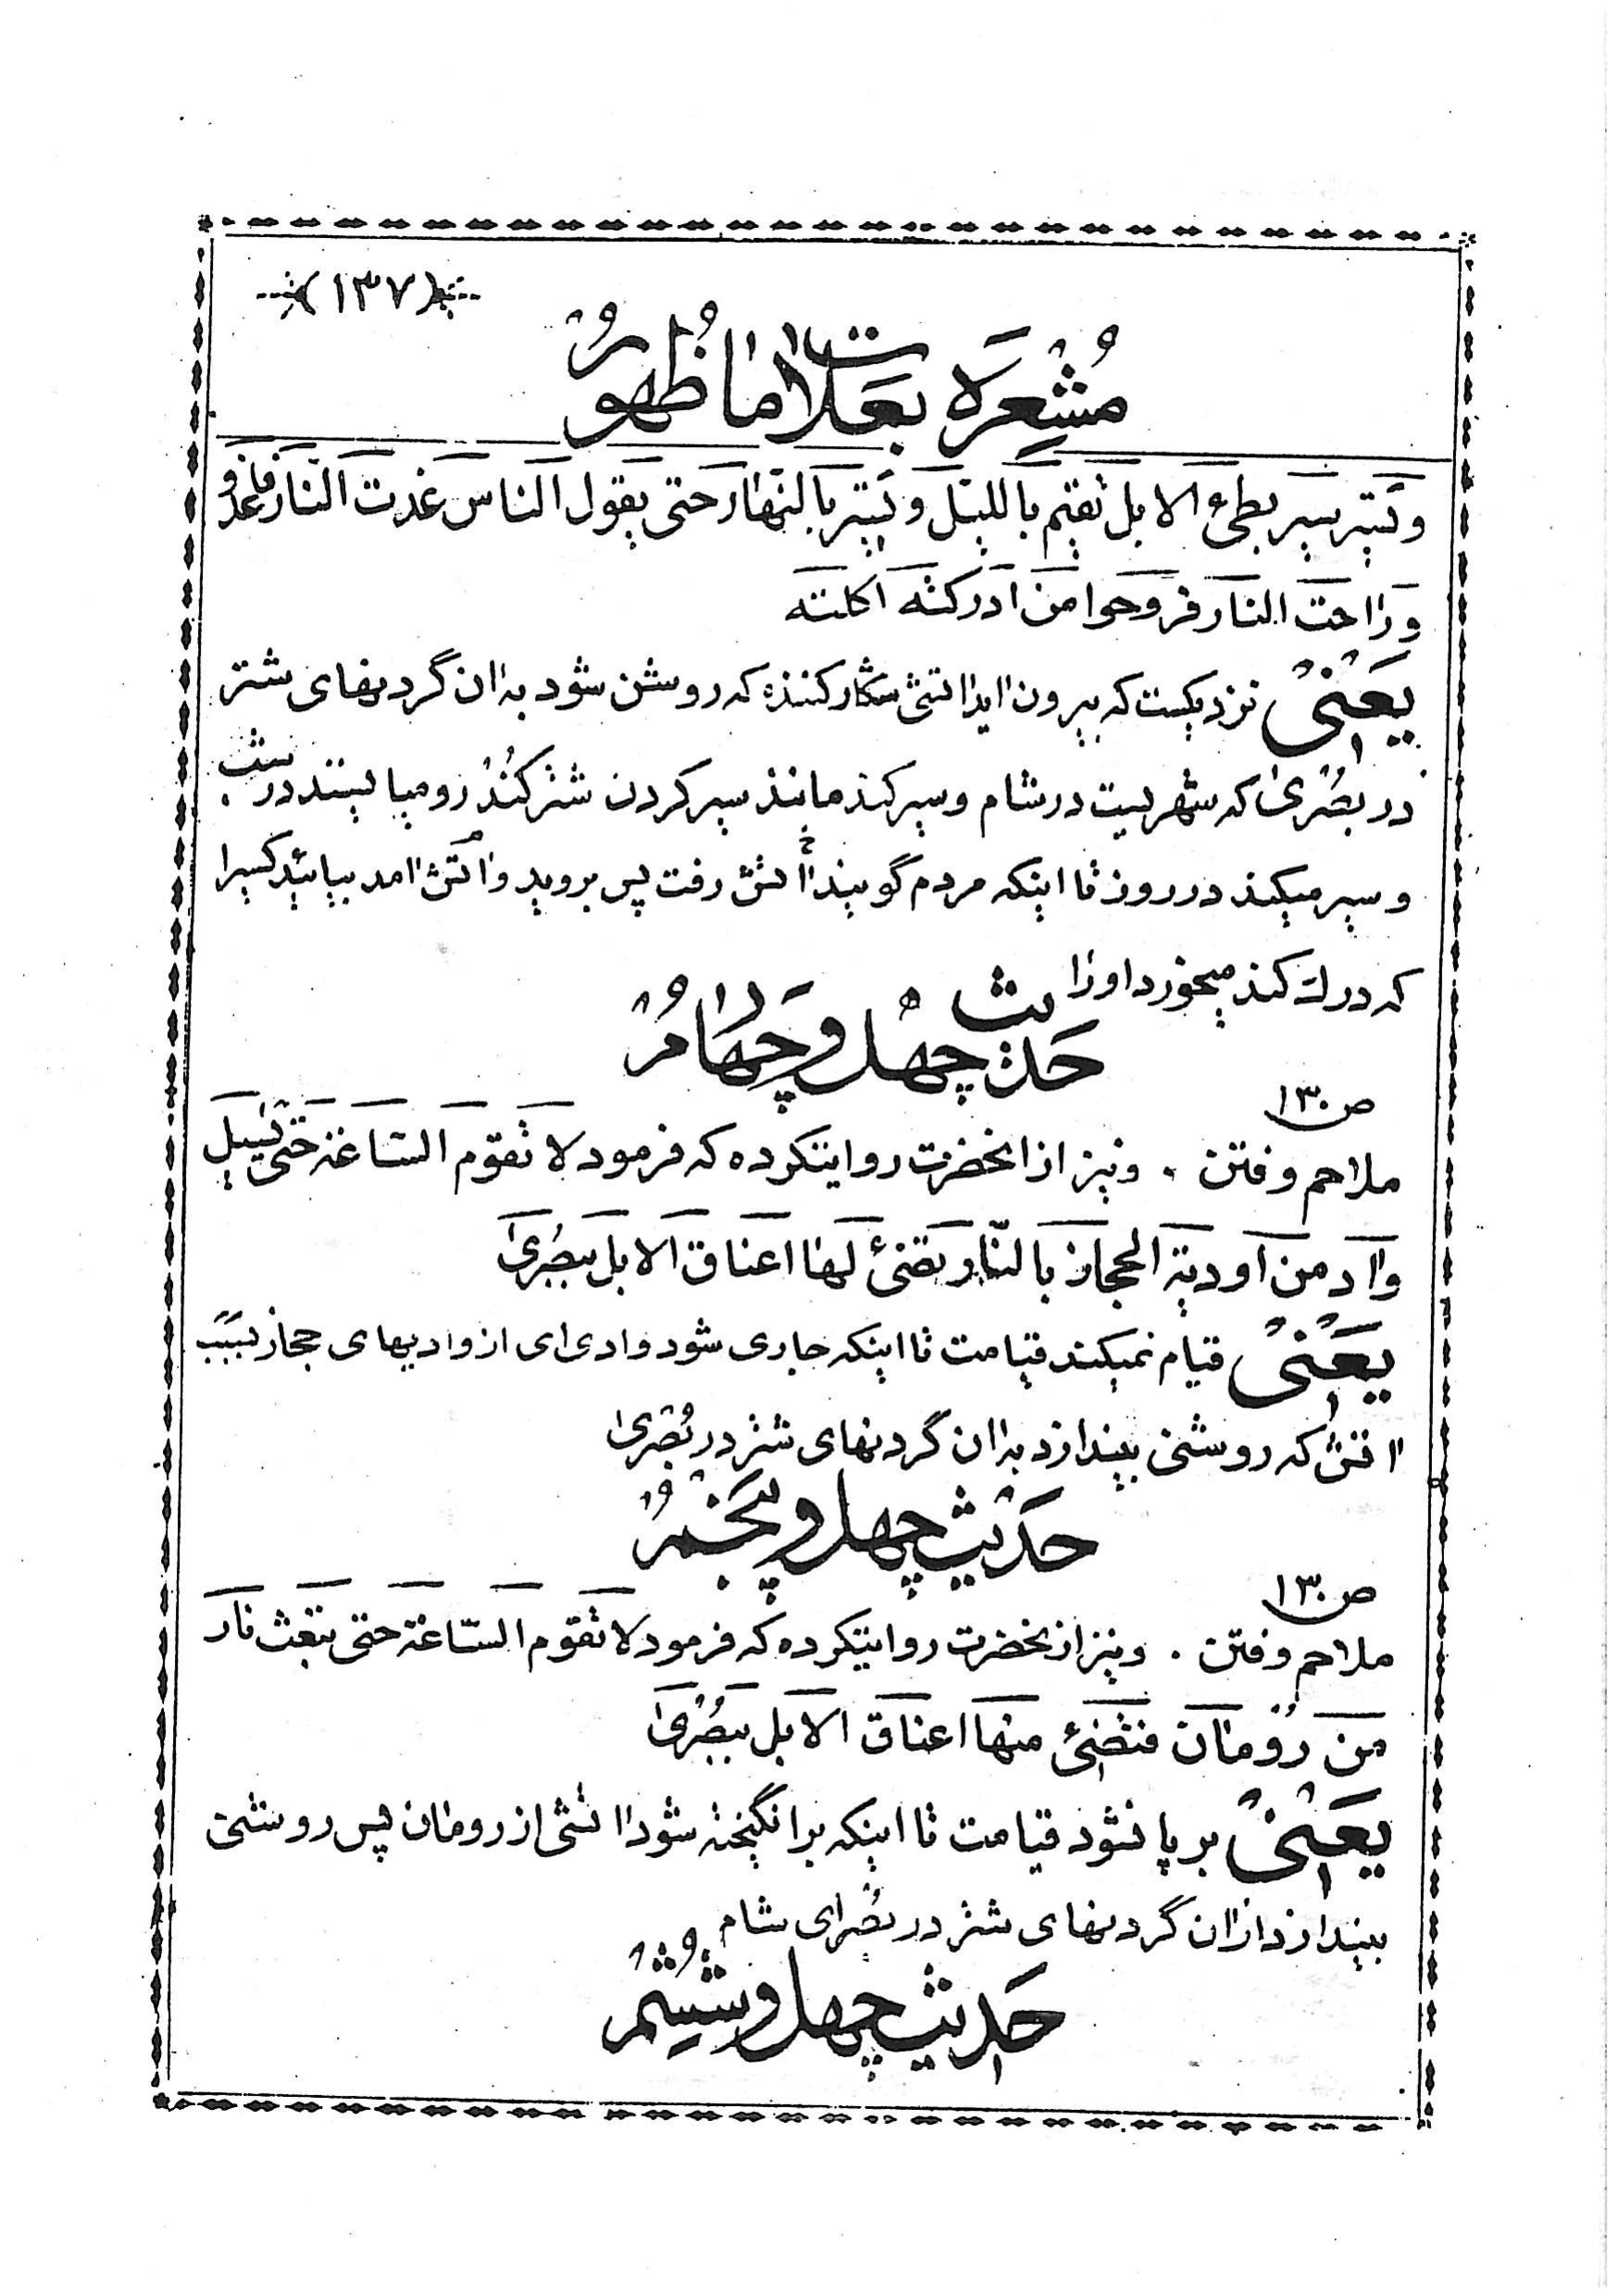 (۱۳۷)
مُشعِرَه بعَلاماتِ ظُهور
و تسیر سیر بطیئ الابل تقیم باللیل و تسیر بالنهار حتی یقول الناس غدت النار فاغدو
و راحت النار فروحوا من ادرکته اکلته
یَعنی نزدیکست که بیرون اید اتشی شکار کننده که روشن شود به ان گردنهای شتر
در بصُری که شهریست در شام و سیر کند مانند سیر کردن شتر کُند رو میایستد در شب
و سیر میکند در روز تا اینکه مردم گویند اتش رفت پس بروید و اتش امد بیایید کسیرا
که درك کند میخورد او را
حدیث چهل و چهارم
ص۱۳۰
ملاحم و فتن . و نیز از انحضرت روایتکرده که فرمود لا تقوم الساعة حتی یسیل
واد من اودیة الحجاز بالنّار تضئ لها اعناق الابل ببصُری
یَعنی قیام نمیکند قیامت تا اینکه جاری شود وادی ای از وادیهای حجاز بسبب
اتش که روشنی بیندازد به ان گردنهای شتر در بُصری
حدیث چهل و پنجم
ص۱۳۰
ملاحم و فتن . و نیز از نحضرت روایتکرده که فرمود لا تقوم السّاعة حتی تبعث نار
من رُومان فتضئ منها اعناق الابل ببصُری
یَعنی بر پا نشود قیامت تا اینکه برانگیخته شود اتشی از رومان پس روشنی
بیندازد از ان گردنهای شتر در بصُرای شام
حدیث چهل و ششم